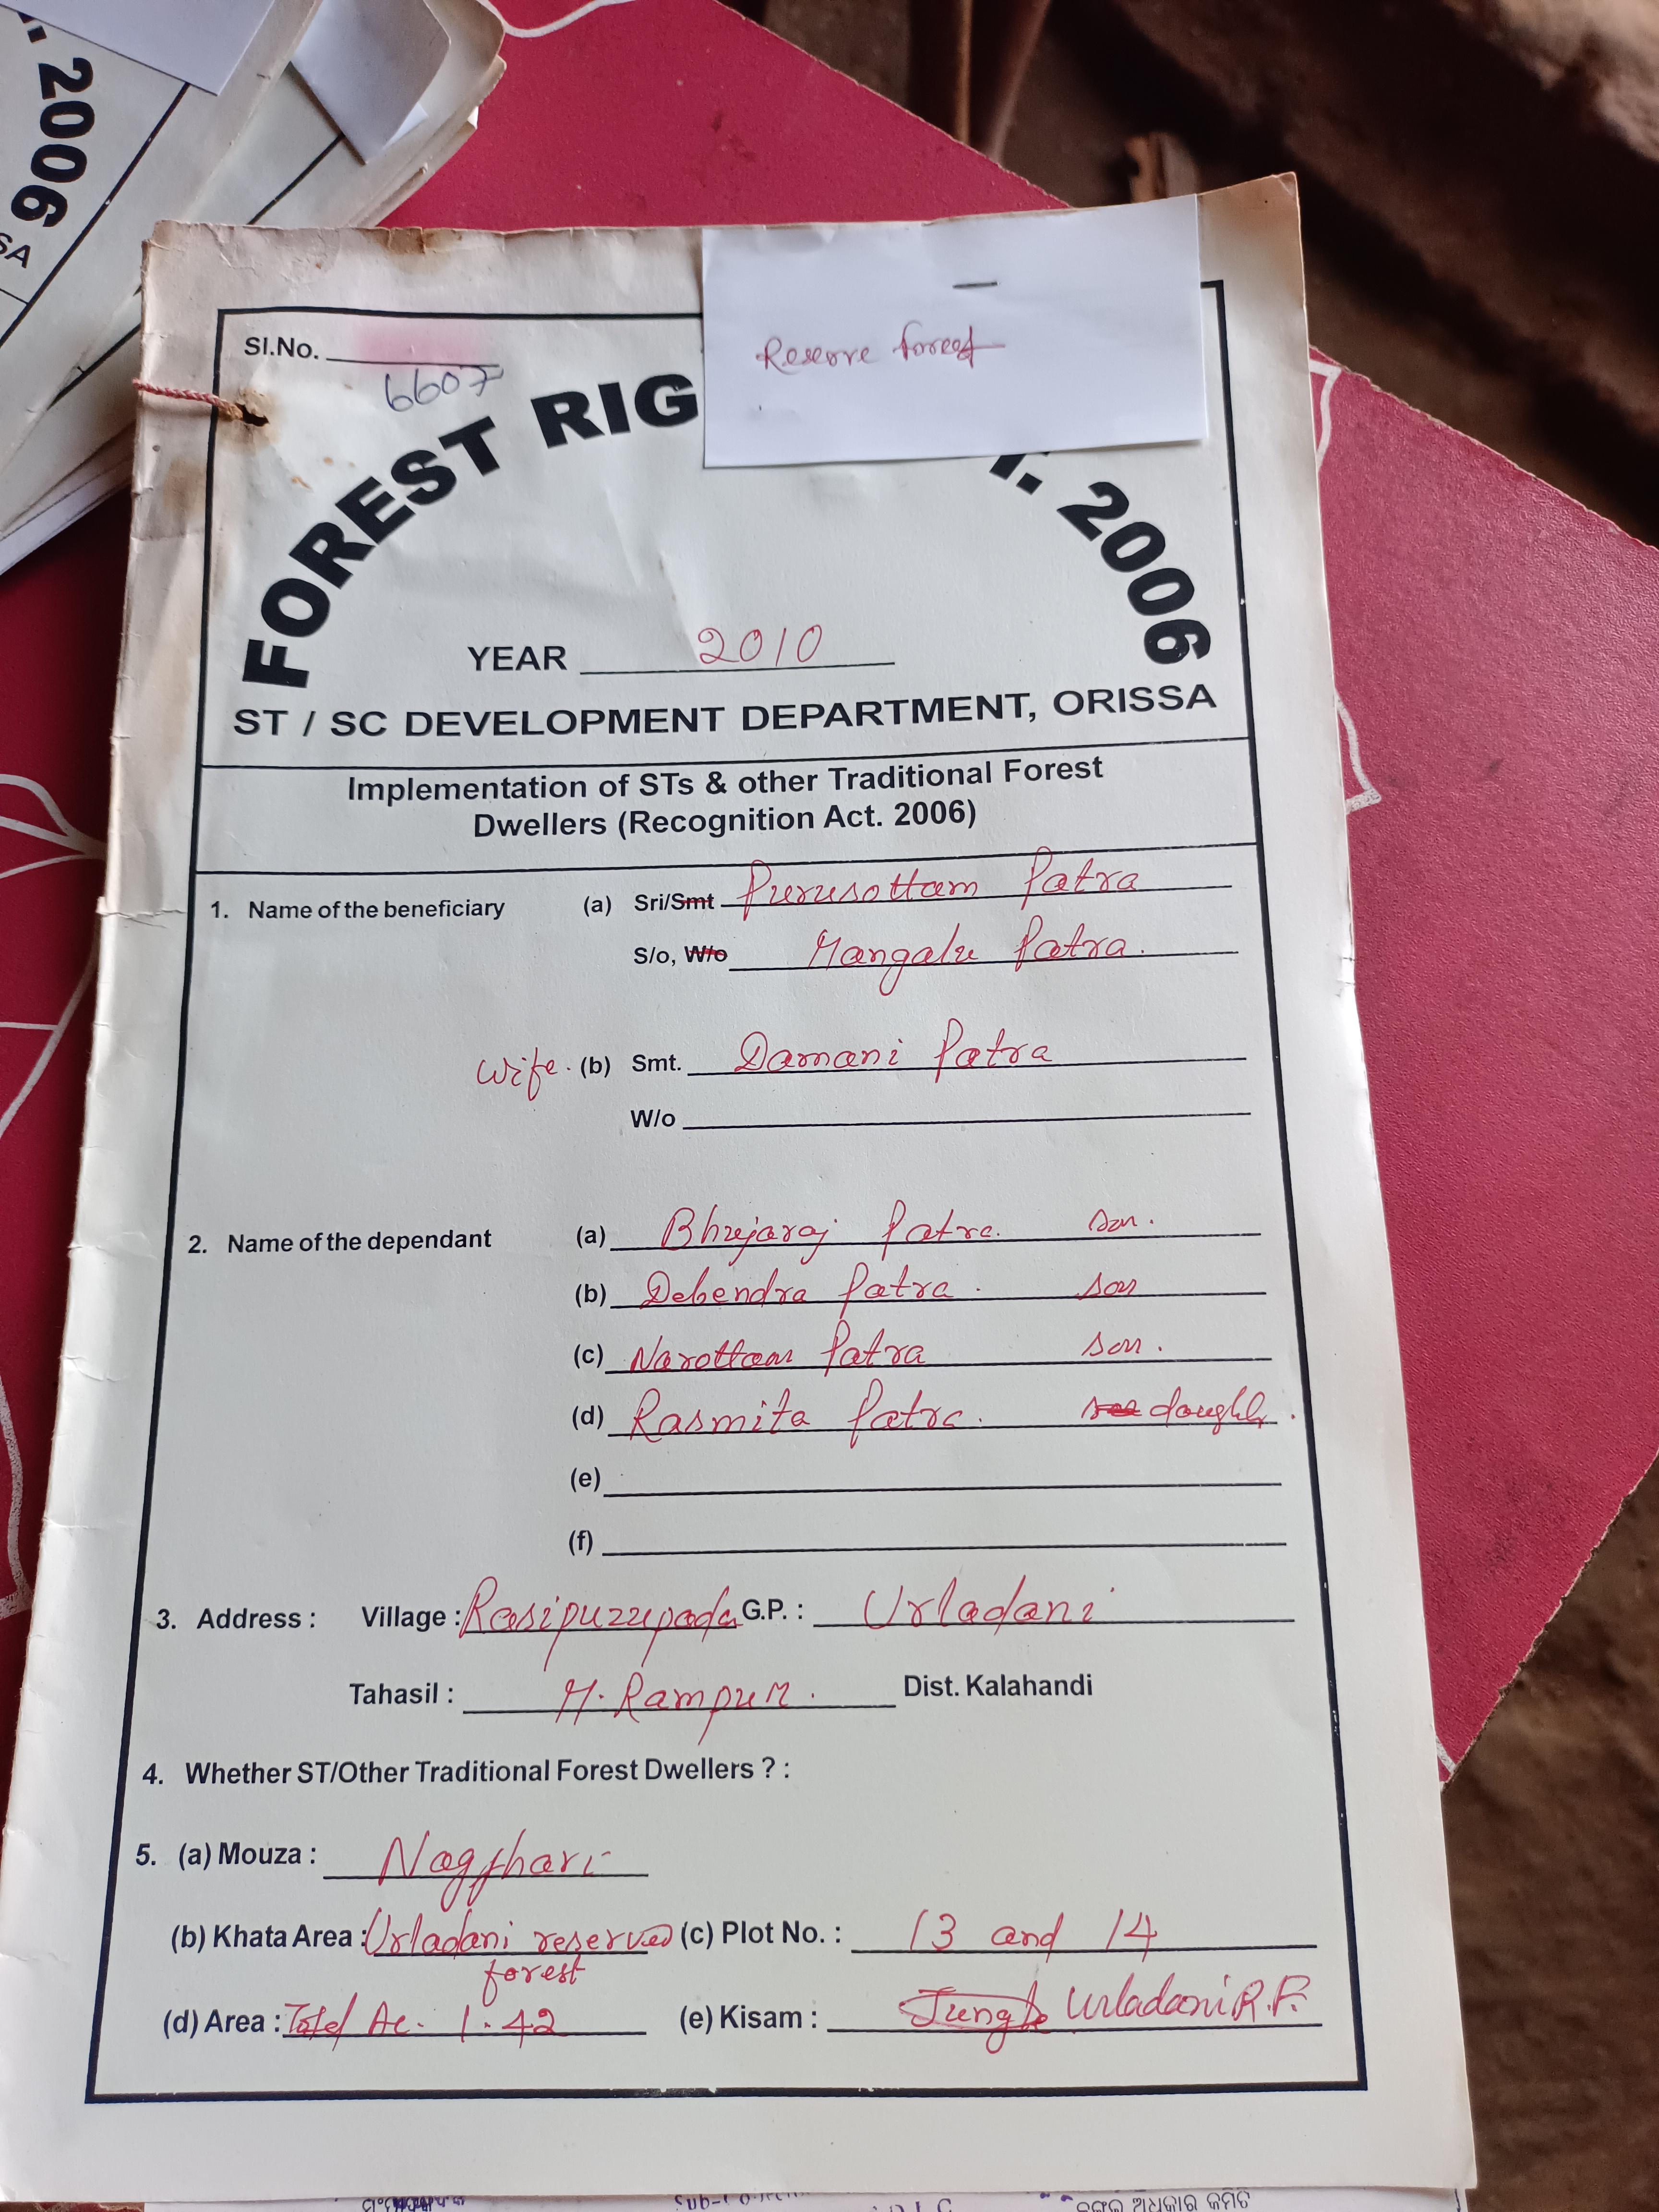 2006
SA
Reserve forest
Sl.No.
6607
FOREST RIG T. 2006
YEAR 2010
ST / SC DEVELOPMENT DEPARTMENT, ORISSA
Implementation of STs & other Traditional Forest
Dwellers (Recognition Act. 2006)
1. Name of the beneficiary (a) Sri/Smt Purusottam Patra
S/o, W/o Mangalu Patra.
Wife. (b) Smt. Damani Patra
W/o
2. Name of the dependant (a) Bhujaraj Patra. son.
(b) Debendra Patra. son
(c) Narottam Patra son.
(d) Rasmita Patra.
(e)
(f)
3. Address : Village : G.P. : Urladani
Tahasil : M. Rampur. Dist. Kalahandi
4. Whether ST/Other Traditional Forest Dwellers ? :
5. (a) Mouza : Nagjhari
(b) Khata Area : Urladani reserved (c) Plot No. : 13 and 14
forest
(d) Area : Total Ac. 1.42 (e) Kisam : Jungle Urladani R.F.